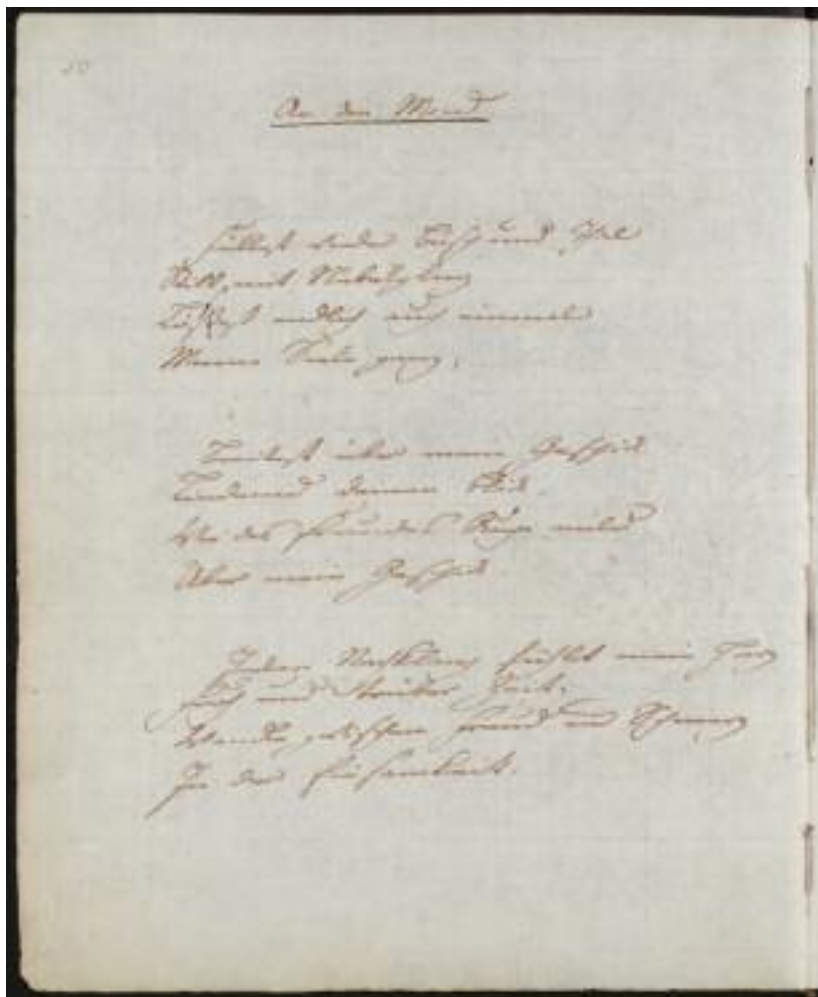 50
An den Mond
Füllest wieder Busch und Thal
Still mit Nebelglanz
Lösest endlich auch einmal
Meine Seele ganz.
Breitest über mein Geschick
Lindernd deinen Blick
Wie des Freundes Auge mild
Über mein Geschick
Jeden Nachklang fühlt mein Herz
Froh und trüber Zeit.
Wandle zwischen Freud und Schmerz
In der Einsamkeit.